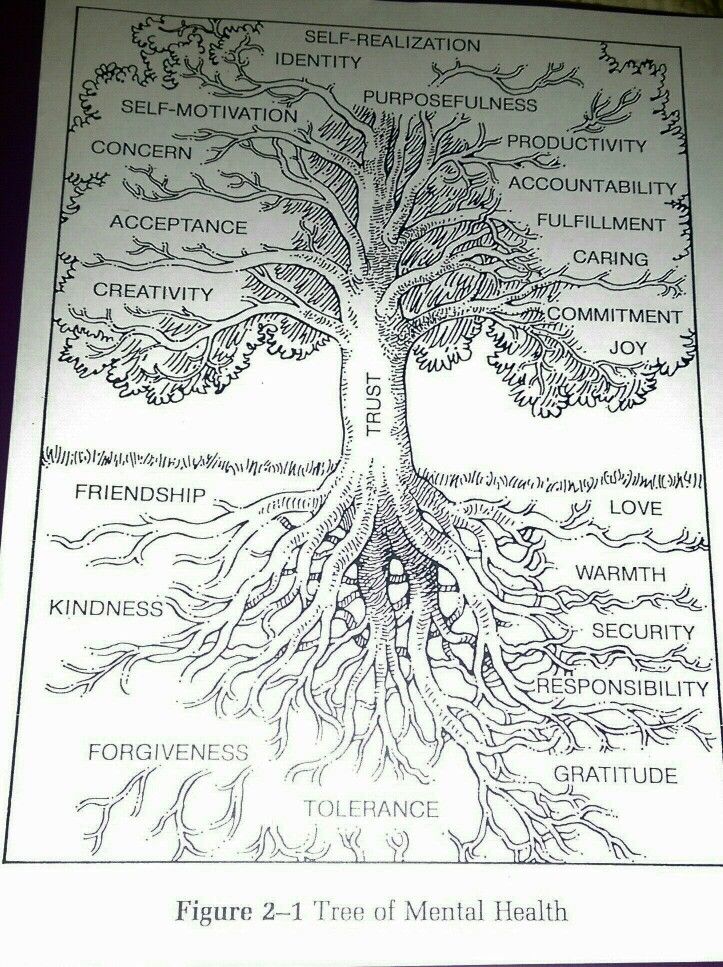 SELF-REALIZATION
IDENTITY
PURPOSEFULNESS
SELF-MOTIVATION
PRODUCTIVITY
CONCERN
ACCOUNTABILITY
ACCEPTANCE
FULFILLMENT
CARING
CREATIVITY
COMMITMENT
JOY
TRUST
FRIENDSHIP
LOVE
WARMTH
KINDNESS
SECURITY
RESPONSIBILITY
FORGIVENESS
GRATITUDE
TOLERANCE
Figure 2–1 Tree of Mental Health